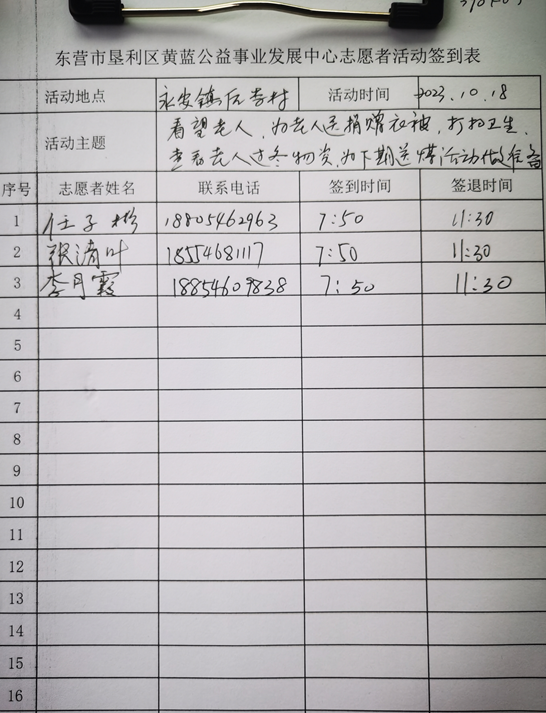 东营市垦利区黄蓝公益事业发展中心志愿者活动签到表
活动地点 永安镇后李村 活动时间 2023.10.18
活动主题 看望老人,为老人送捐赠衣被,打扫卫生,
查看老人过冬物资,为下期送煤活动做准备
序号 志愿者姓名 联系电话 签到时间 签退时间
1 任子彬 18805462963 7:50 11:30
2 张清叶 18554681117 7:50 11:30
3 李月霞 18854609838 7:50 11:30
4
5
6
7
8
9
10
11
12
13
14
15
16